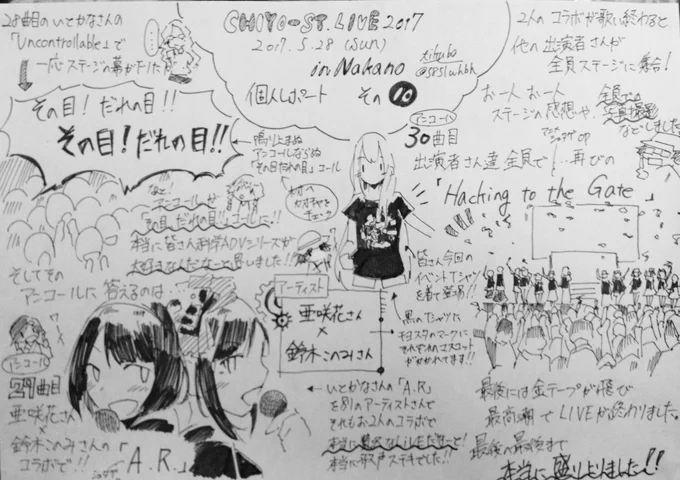 28曲目のいとうかなこさんの
「Uncontrollable」で
一応ステージの幕が下りた
その目！だれの目！！
その目！だれの目！！
CHIYO-ST.LIVE 2017
2017.5.28 (sun)
in Nakano
個人レポート その10
鳴り止まぬ
アンコールならぬ
「その目だれの目」コール
アンコールが
「その目 だれの目！！」コールに！！
本当に皆さん科学ADVシリーズが
大好きなんだなーと感じました！！
そしてその
アンコールに答えるのは…
アンコール
29曲目
亜咲花さん
鈴木このみさんの
コラボで！！「A.R.」
アーティスト
亜咲花さん
×
鈴木このみさん
いとうかなこさんの「A.R」
を別のアーティストさんで
それもお2人のコラボで
本当にステキでした！！
2人のコラボが歌い終わると
他の出演者さんが
全員ステージに集合！
お一人お一人
ステージの感想や、
全員での
写真撮影
などしました
アンコール
30曲目
出演者さん達全員で！…再びの
「Hacking to the Gate」
皆さん今回の
イベントTシャツ
を着て登場！！
黒のTシャツに
チヨスタのマークに
それぞれのマスコット
がかかれてます！！
最後には金テープが飛び
最高潮でLIVEが終わりました。
最後の最後まで
本当に盛り上りました！！